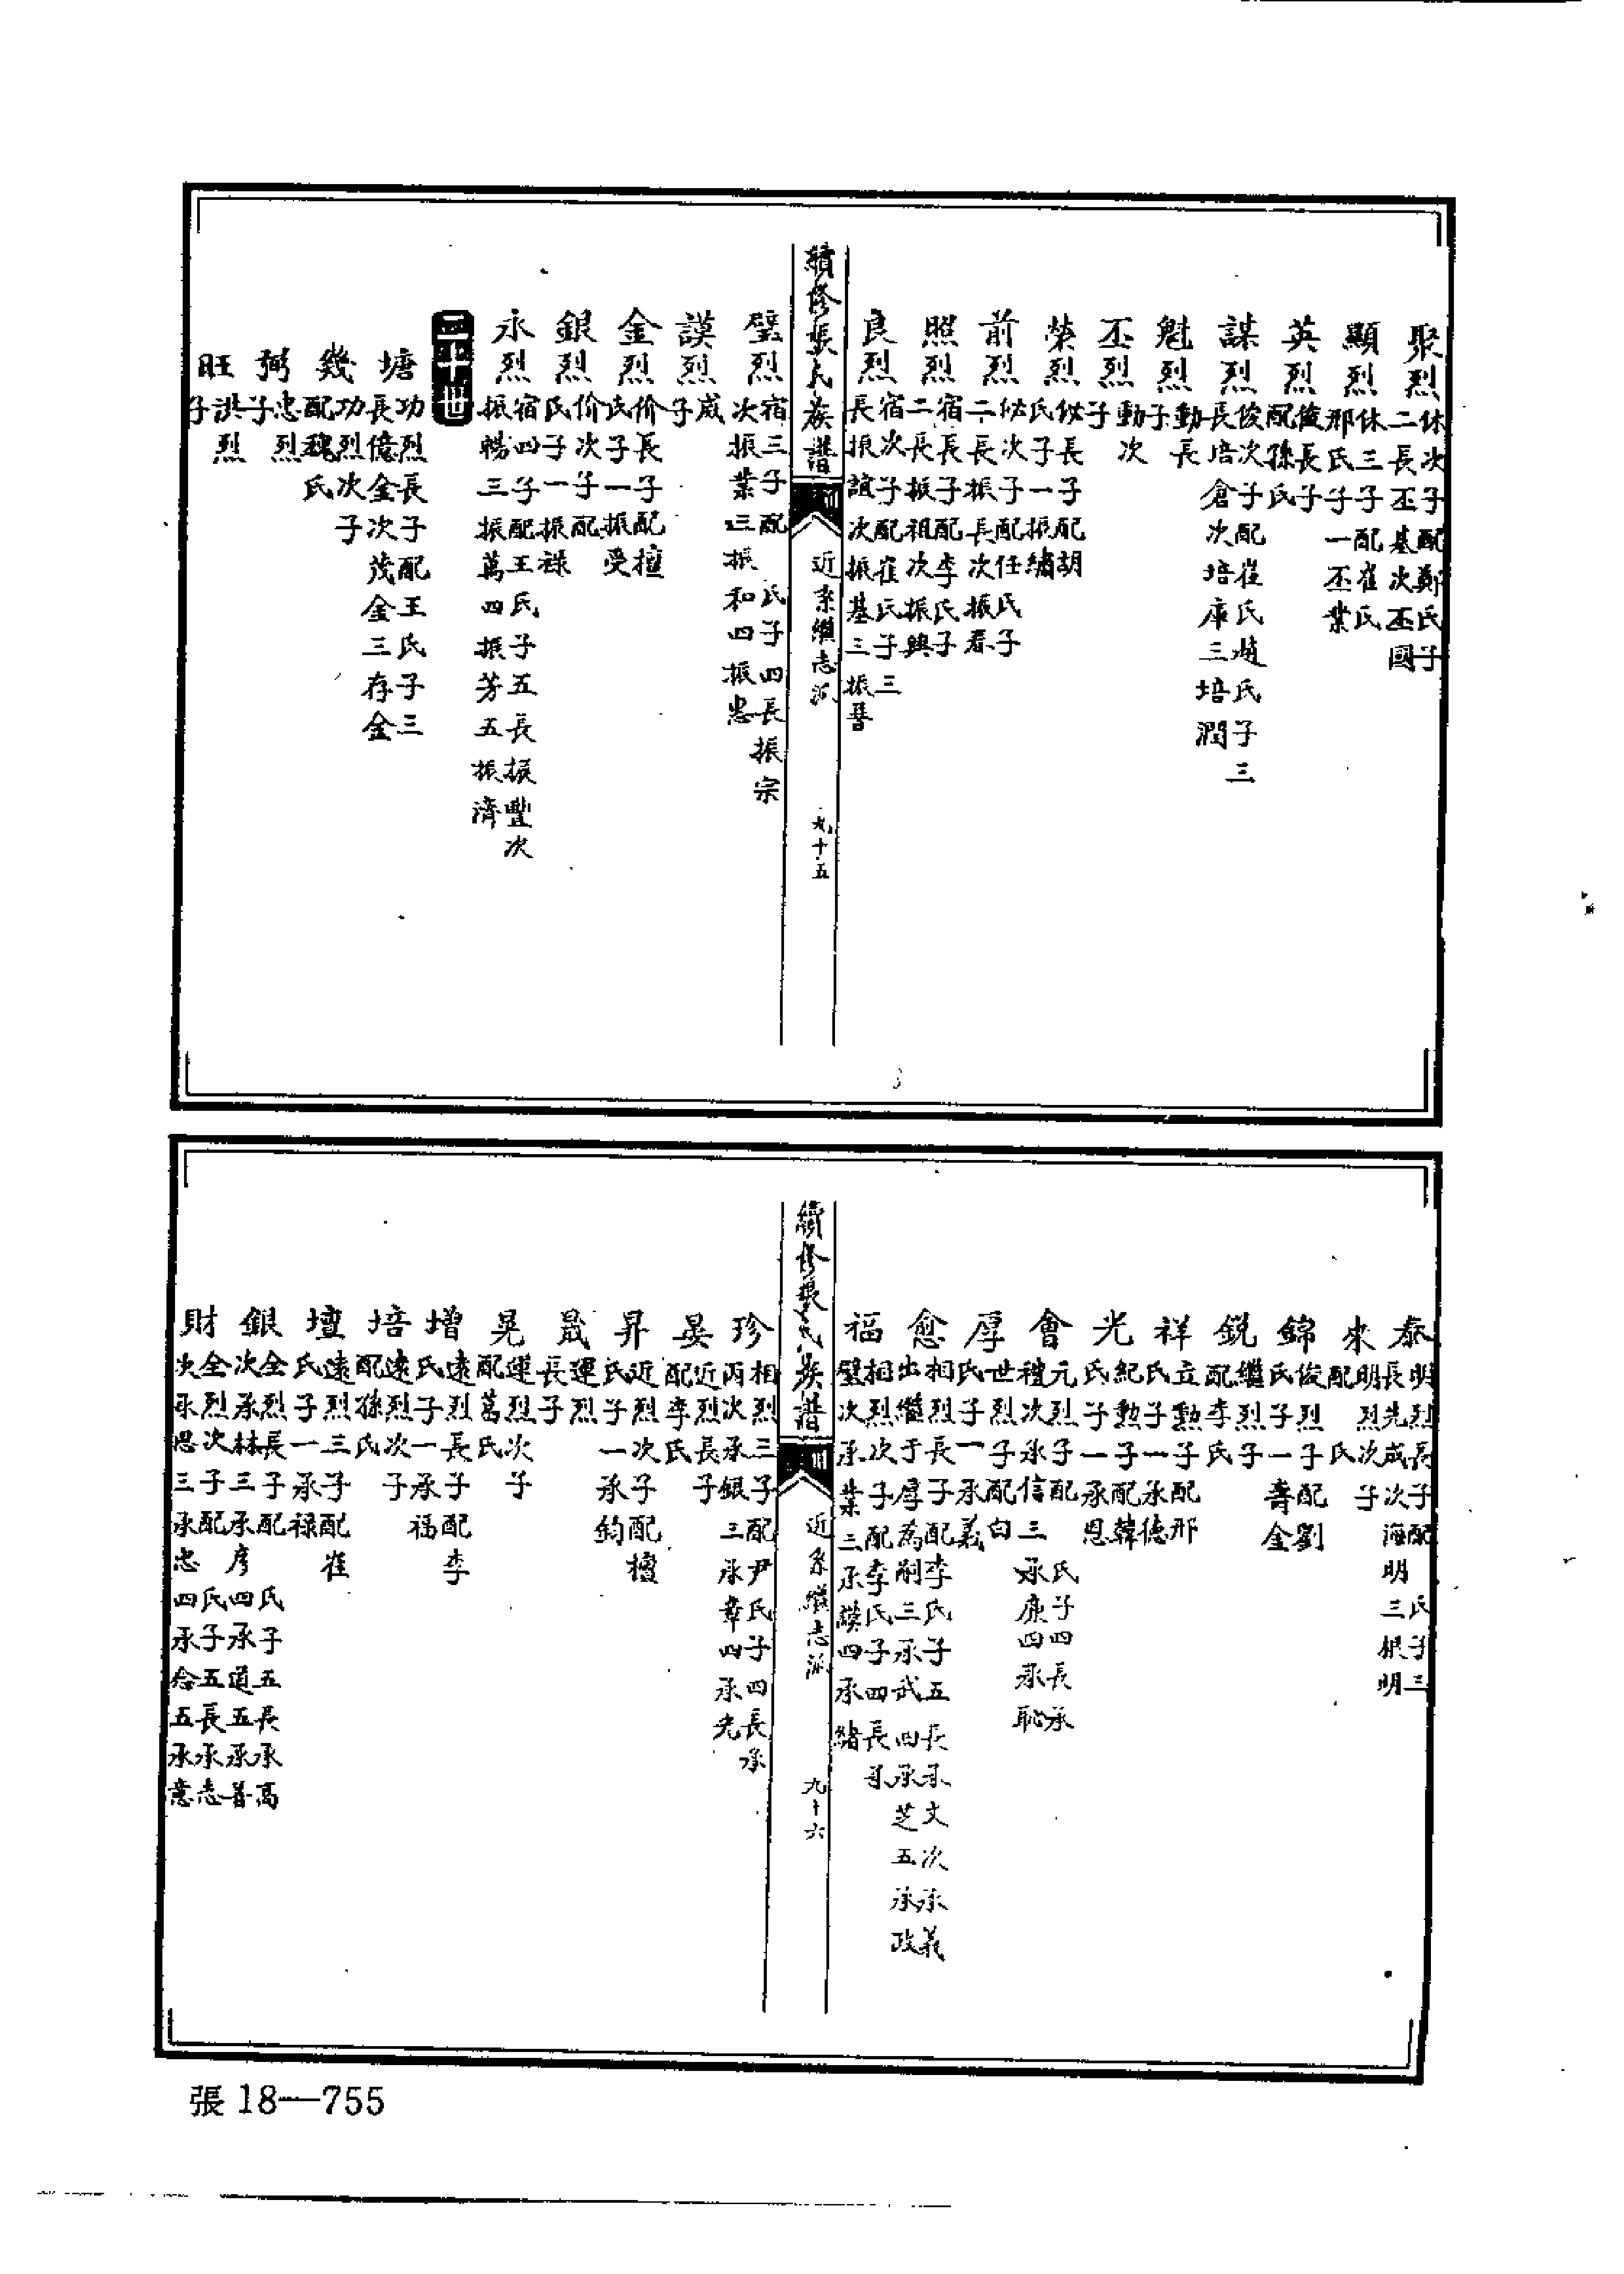 聚烈
休次子配鄭氏子
二長丕基次丕國
顯烈
休三子配崔氏
邢氏子一丕業
英烈
俊長子
配孫氏
謀烈
俊次子配崔氏趙氏子三
長培倉次培庫三培潤
魁烈
勳長
子
丕烈
勳次
子
榮烈
佖長子配胡
氏子一振繡
前烈
佖次子配任氏子
二長振長次振春
照烈
宿長子配李氏子
二長振祖次振興
良烈
宿次子配崔氏子三
長振誼次振基三振誉
續修張氏族譜
近系繼志派
九十五
璧烈
宿三子配 氏子四長振宗
次振業三振和四振忠
謨烈
宬
子
金烈
价長子配檀
氏子一振受
銀烈
价次子配
氏子一振祿
永烈
宿四子配王氏子五長振豐次
振暢三振萬四振芳五振濟
二十世
塘
功烈長子配王氏子三
長億金次茂金三存金
幾
功烈次子
配魏氏
弼
忠烈
子
旺
洪烈
子
泰
明烈長子配 氏子三
長先成次海明三根明
來
明烈次子
配 氏
錦
俊烈子配劉
氏子一壽金
銳
繼烈子
配李氏
祥
立勳子配邢
氏子一承德
光
紀勳子配韓
氏子一承恩
會
元烈子配 氏子四長承
禮次承信三承康四承恥
厚
世烈子配白
氏子一承義
愈
相烈長子配李氏子五長承文次承義
出繼于厚為嗣三承武四承芝五承政
福
相烈次子配李氏子四長承
璧次承業三承謨四承緒
續修張氏族譜
近系繼志派
九十六
珍
相烈三子配尹氏子四長承
丙次承銀三承章四承先
晏
近烈長子
配李氏
昇
近烈次子配檀
氏子一承鈞
晟
運烈
長子
晃
運烈次子
配葛氏
增
遠烈長子配李
氏子一承福
培
遠烈次子
配孫氏
壇
遠烈三子配崔
氏子一承祿
銀
全烈長子配 氏子五長承高
次承林三承彦四承道五承善
財
全烈次子配 氏子五長承志
次承恩三承忠四承念五承意
張 18—755